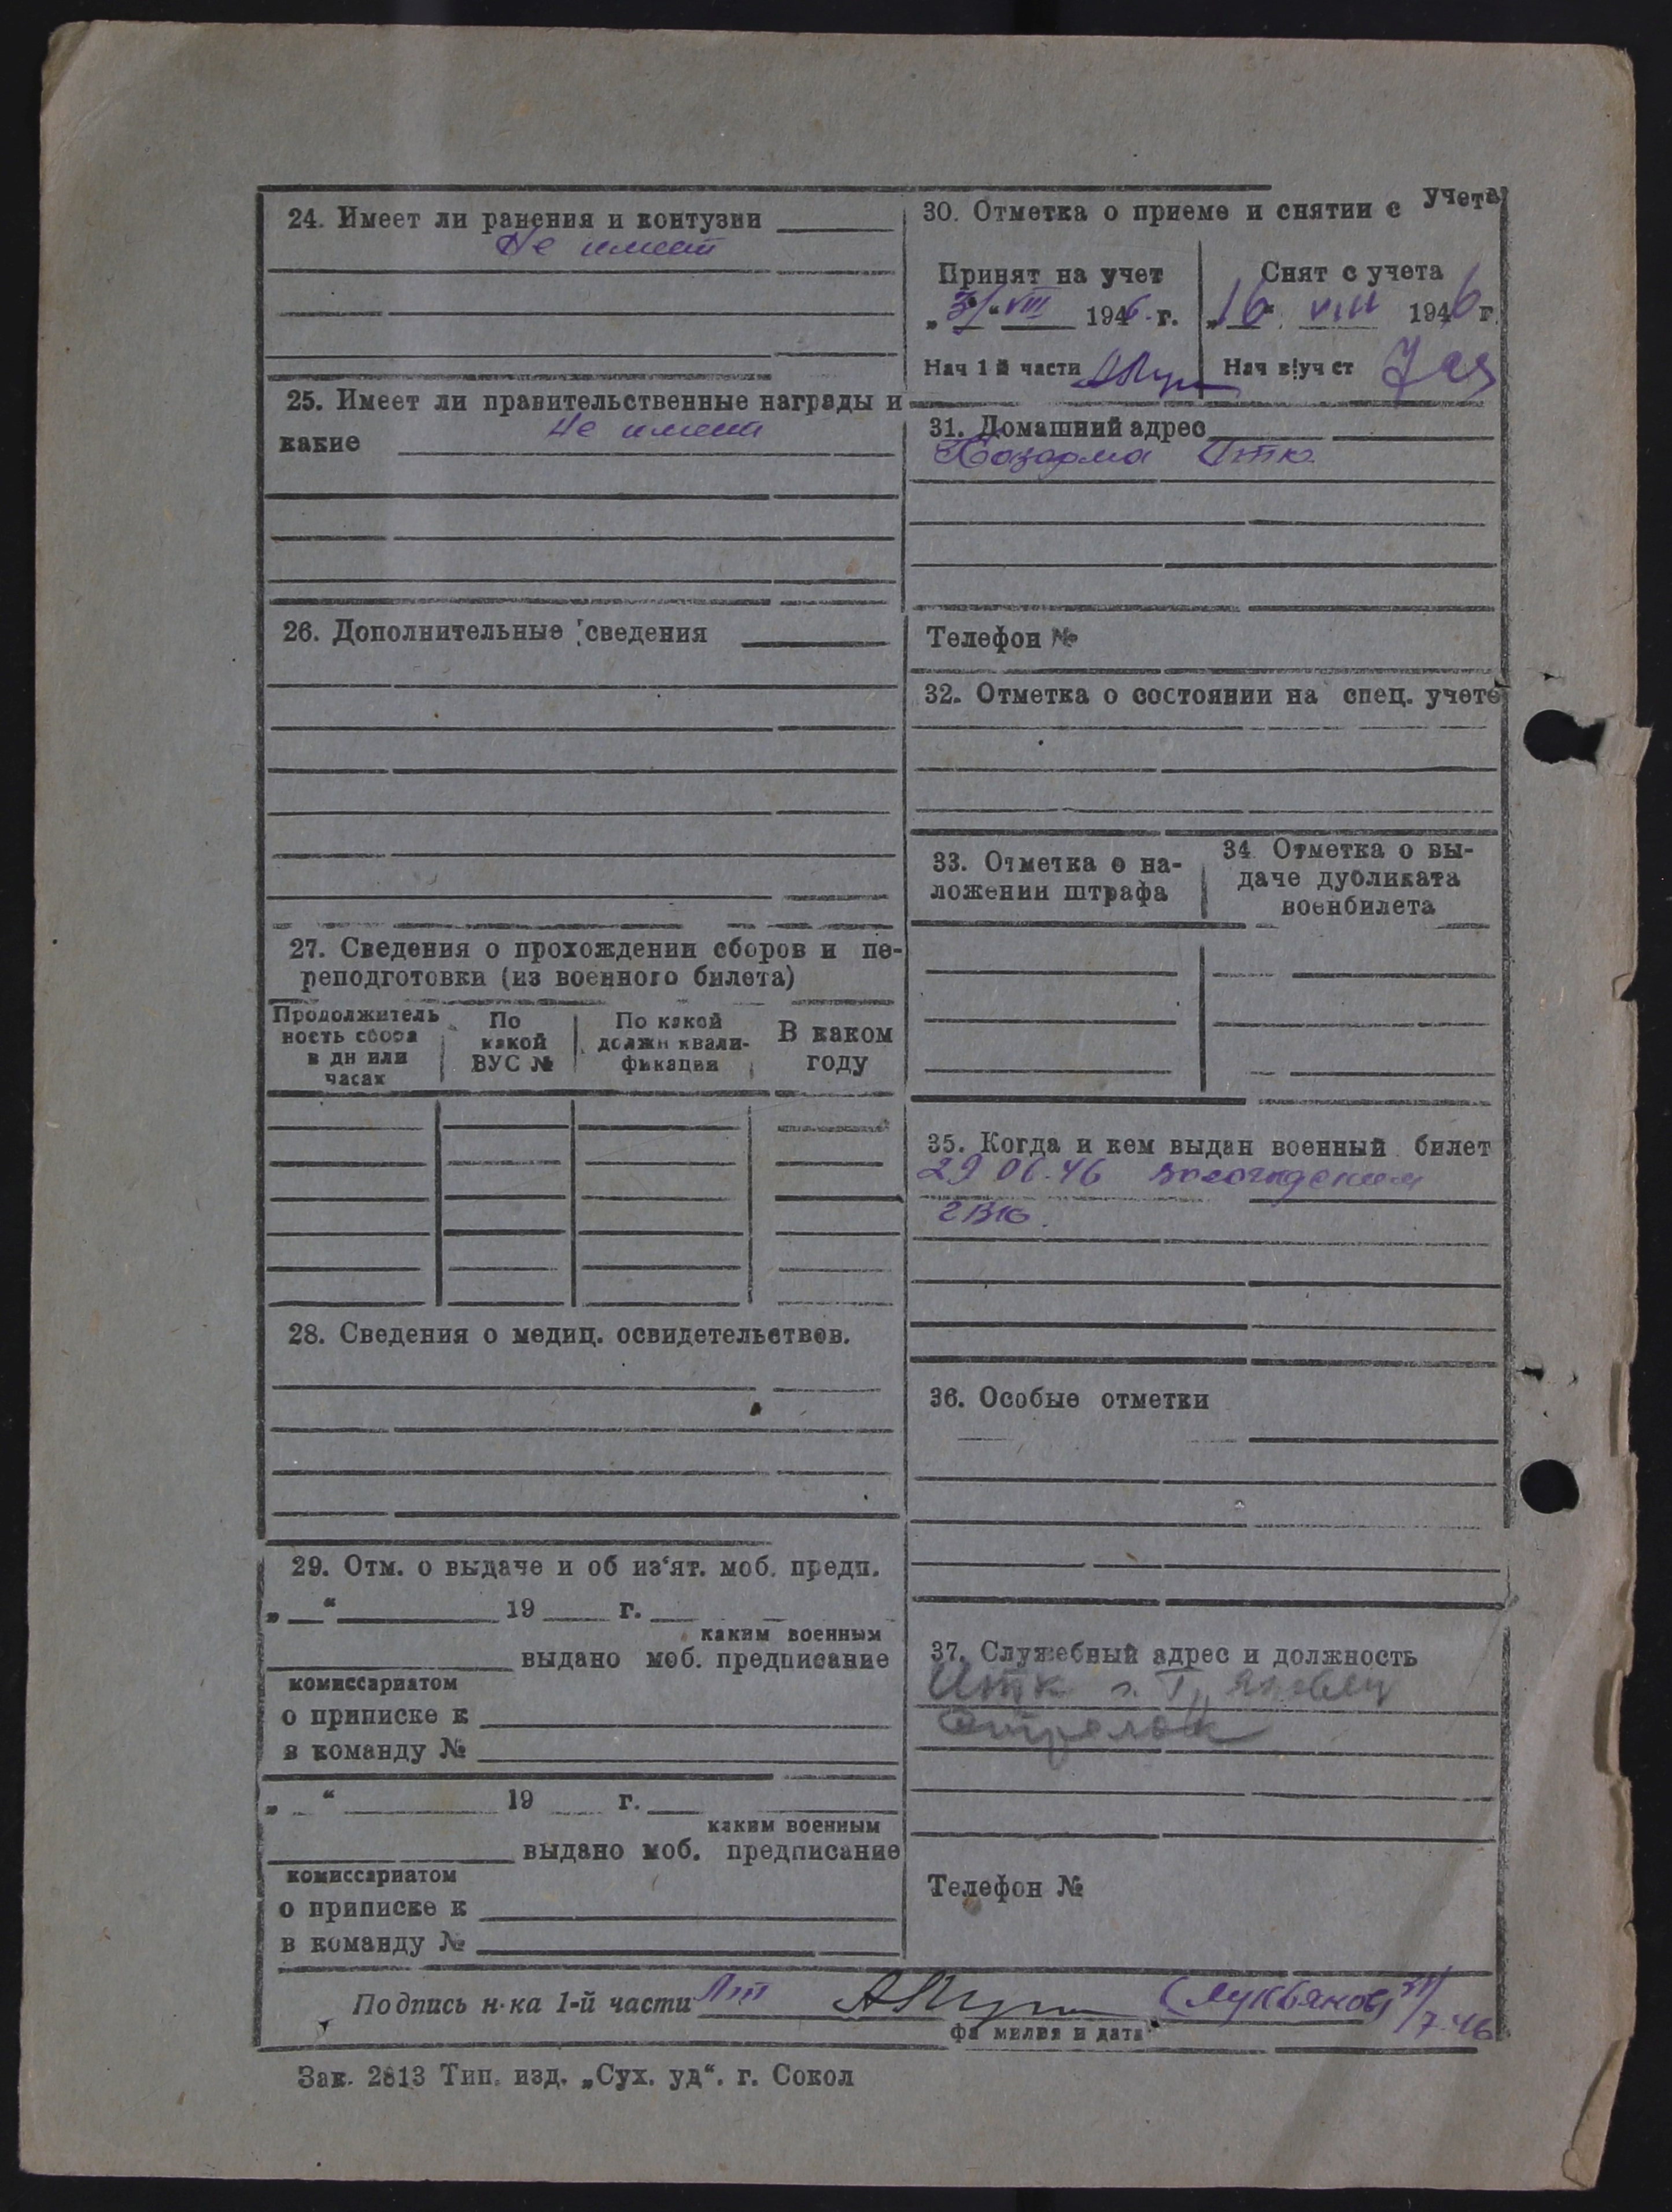 24. Имеет ли ранения и контузии
Не имеет
25. Имеет ли правительственные награды и
какие Не имеет
26. Дополнительные сведения
27. Сведения о прохождении сборов и пе-
реподготовки (из военного билета)
Продолжитель
ность сбора
в дн или
часах
По
какой
ВУС №
По какой
должн квали-
фикации
В каком
году
28. Сведения о медиц. освидетельствов.
29. Отм. о выдаче и об из‘ят. моб. предп.
„ “ 19 г.
каким военным
выдано моб. предписание
комиссариатом
о приписке к
в команду №
„ “ 19 г.
каким военным
выдано моб. предписание
комиссариатом
о приписке к
в команду №
30. Отметка о приеме и снятии с учета
Принят на учет
„31“ VIII 1946 г.
Нач 1 й части
Снят с учета
„16“ VIII 1946 г.
Нач в/уч ст
31. Домашний адрес
Казарма Итк
Телефон №
32. Отметка о состоянии на спец. учете
33. Отметка о на-
ложении штрафа
34 Отметка о вы-
даче дубликата
военбилета
35. Когда и кем выдан военный билет
29 06.46
36. Особые отметки
37. Служебный адрес и должность
Итк г.
Стрелок
Телефон №
Подпись н-ка 1-й части Лт (Лукьянов) 31/7.46
фамилия и дата
Зак. 2813 Тип. изд. „Сух. уд“. г. Сокол